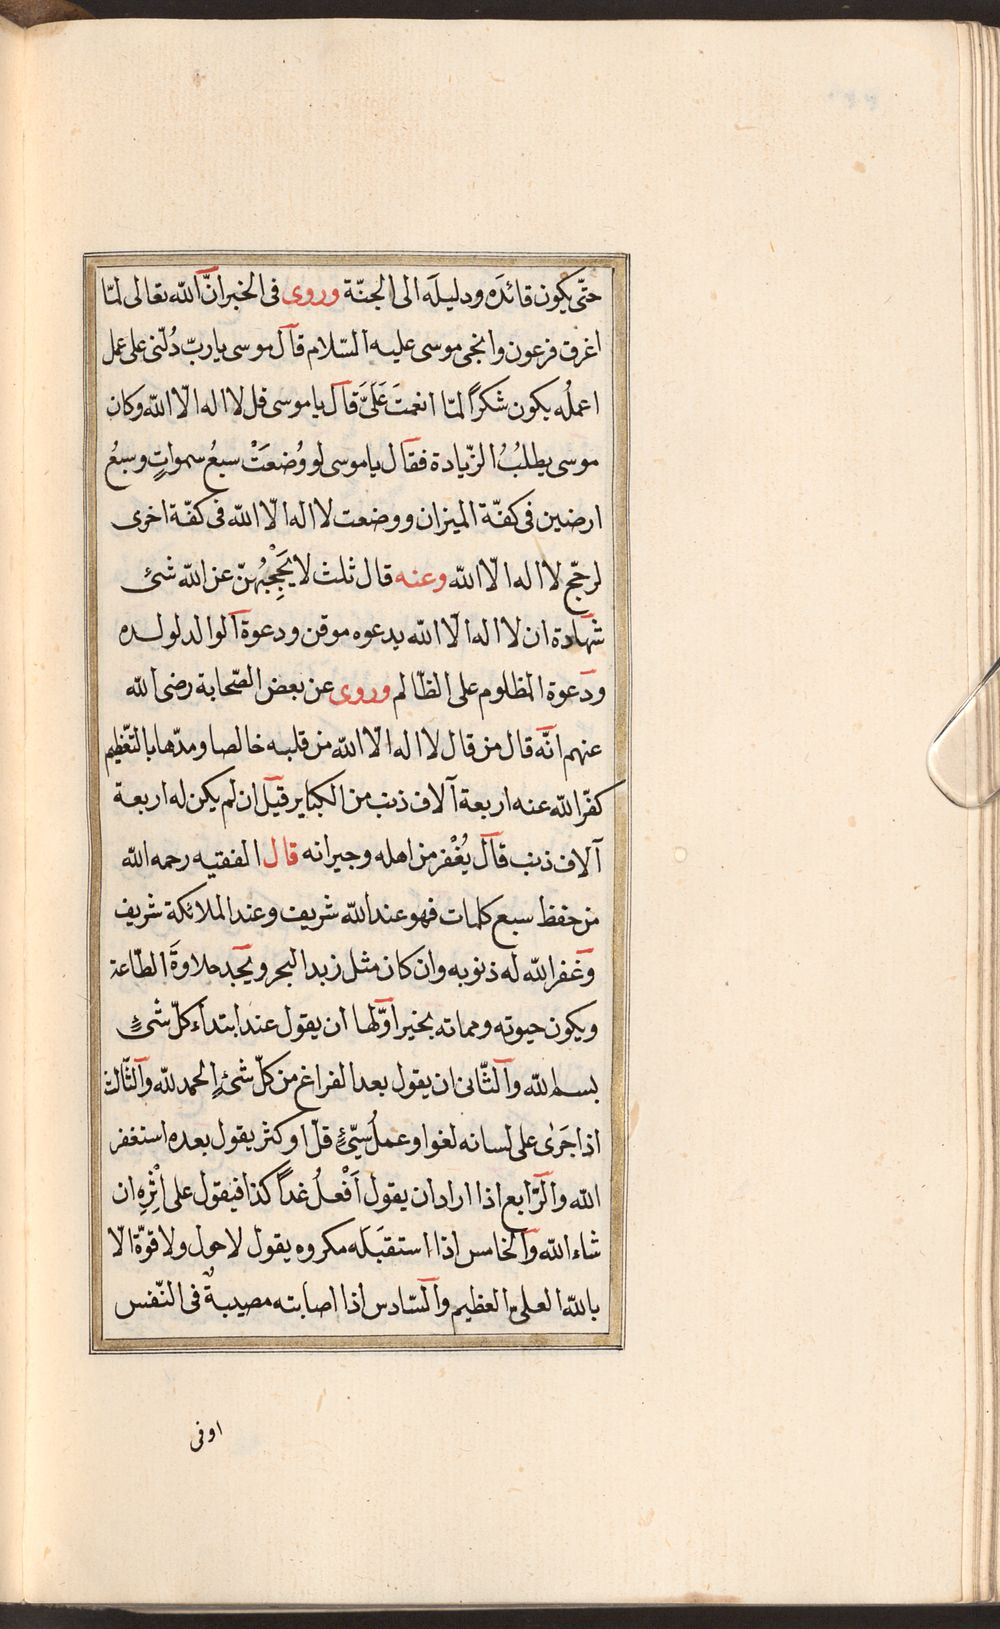 حتّى يكون قائدَه ودليلَه الى الجنّة وروى فى الخبر انَّ الله تعالى لمّا
اغرق فرعون وانجى موسى عليه السّلام قال موسى يا ربّ دُلّنى على عمل
اعملُه يكون شكرًا لمّا انعمتَ عَلَىَّ قال يا موسى قل لا اله الّا الله وكان
موسى يطلبُ الزّيادة فقال يا موسى لو وُضعَتْ سبعُ سمواتٍ وسبعُ
ارضين فى كفّة الميزان ووضعت لا اله الّا الله فى كفّة اخرى
لرجّح لا اله الّا الله وعنه قال ثلث لا يَحْجِبُهنّ عن الله شئ
شهادة ان لا اله الّا الله يدعوه موقن ودعوة الوالد لولده
ودعوة المظلوم على الظّالم وروى عن بعض الصّحابة رضى الله
عنهم انّه قال من قال لا اله الّا الله من قلبه خالصا ومدّها بالتّعظيم
كفّر الله عنه اربعة آلاف ذنب من الكبائر قيل ان لم يكن له اربعة
آلاف ذنب قال يُغْفر من اهله وجيرانه قال الفقيه رحمه الله
من حفظ سبع كلمات فهو عند الله شريف وعند الملائكة شريف
وغفر الله له ذنوبه وان كان مثل زبد البحر ويجد حلاوةَ الطّاعة
ويكون حيوته ومماته بخير اوّلها ان يقول عند ابتداء كلّ شئٍ
بسم الله والثّانى ان يقول بعد الفراغ من كلّ شئٍ الحمد لله والثّالث
اذا جَرٰى على لسانه لغو او عملُ سيّئٍ قلّ او كثر يقول بعده استغفر
الله والرّابع اذا اراد ان يقول اَفْعلُ غداً كذا فيقول على اِثْرِهِ ان
شاء الله والخامس اذا استقبَله مكروه يقول لا حول ولا قوّة الّا
بالله العلىّ العظيم والسّادس اذا اصابته مصيبةٌ فى النّفس
اوفى